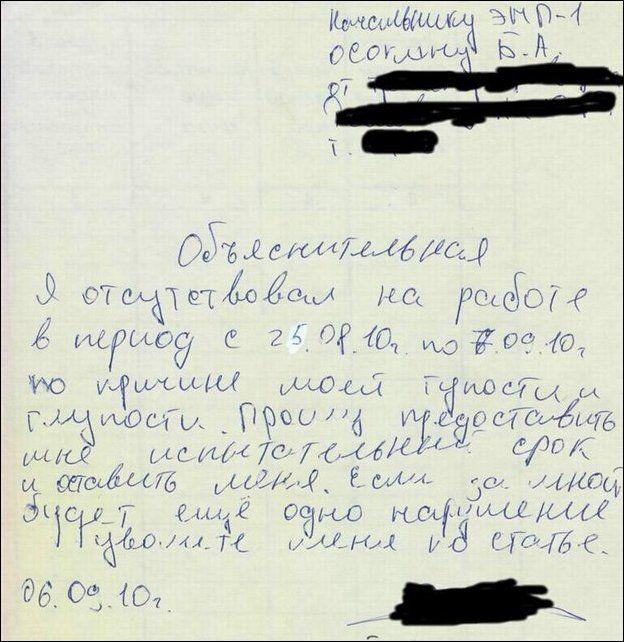 Начальнику ЭМП-1
Осокину Б.А.
от
т.
Объяснительная
Я отсутствовал на работе
в период с 25.08.10г. по 6.09.10г
по причине моей тупости и
глупости. Прошу предоставить
мне испытательный срок
и оставить меня. Если за мной
будет ещё одно нарушение
увольте меня по статье.
06.09.10г.